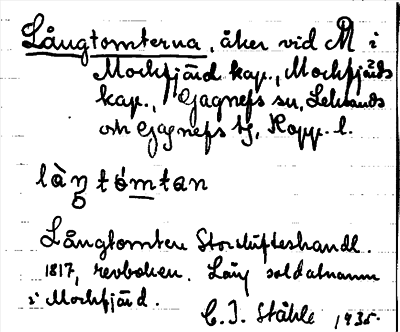 Långtomterna, åker vid M i
Mockfjärd kap., Mockfjärds
kap., Gagnefs sn, Leksands
och Gagnefs tg, Kopp. l.
làŋ tómtan
Långtomten Storskifteshandl.
1817, revboken. Lång soldatnamn
i Mockfjärd.
C.I. Ståhle 1935.